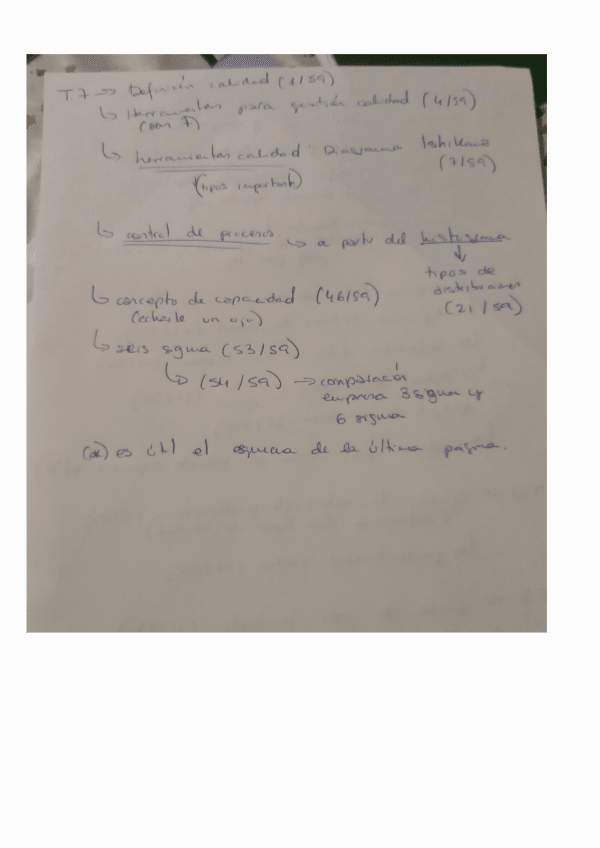 T7 → Definición calidad (1/59)
↳ Herramientas para gestión calidad (4/59)
(son 7)
↳ herramientas calidad: Diagrama Ishikawa
(7/59)
(tipos important)
↳ control de procesos ↳ a partir del histograma
↓
tipos de
distribuciones
(21/59)
↳ concepto de capacidad (46/59)
(echarle un ojo)
↳ seis sigma (53/59)
↳ (54/59) → comparación
empresa 3 sigma y
6 sigma
es útil el esquema de la última página.